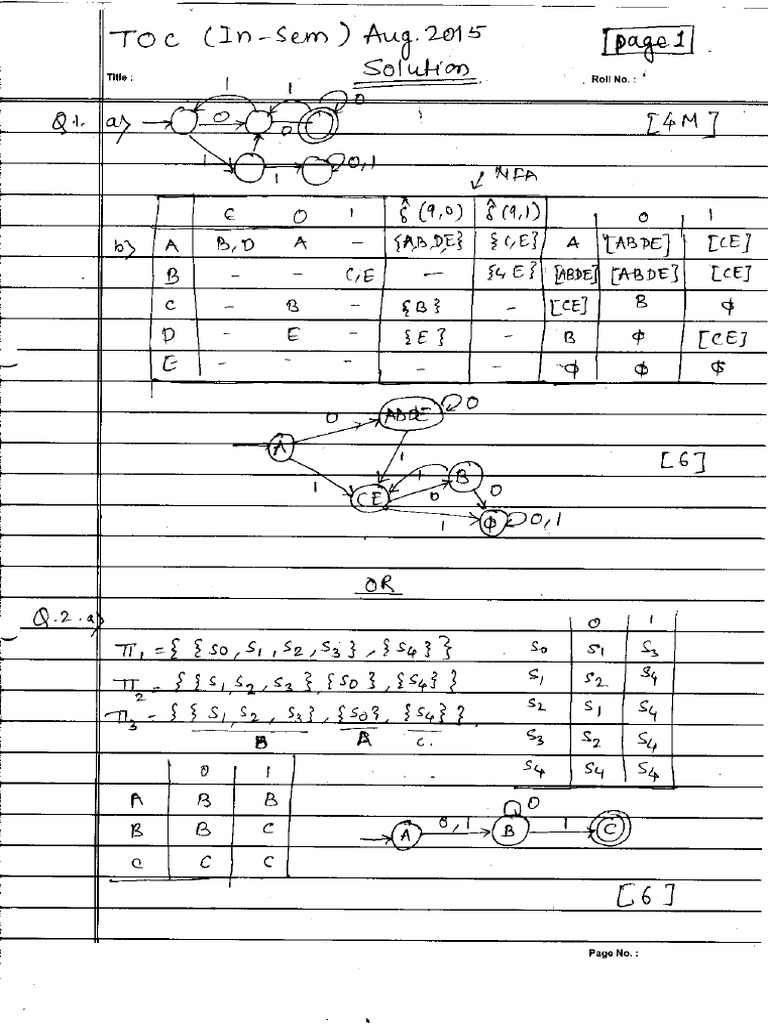 TOC (In-Sem) Aug. 2015
[page 1]
Solution
Title :
Roll No. :
Q1. a)
1 1 0
0 0
1 1 0,1
[4M]
NFA
ϵ 0 1 δ̂(q,0) δ̂(q,1) 0 1
b) A B,D A - {A,B,D,E} {C,E} A [ABDE] [CE]
B - - C,E - {C,E} [ABDE] [ABDE] [CE]
C - B - {B} - [CE] B ϕ
D - E - {E} - B ϕ [CE]
E - - - - - ϕ ϕ ϕ
0 ABDE 0
A 1
1 CE 1 0 B 0
1 ϕ 0,1
[6]
OR
Q.2.a)
0 1
π1 = { {s0, s1, s2, s3}, {s4} } s0 s1 s3
π2 = { {s1, s2, s3}, {s0}, {s4} } s1 s2 s4
π3 = { {s1, s2, s3}, {s0}, {s4} }. s2 s1 s4
B A C. s3 s2 s4
s4 s4 s4
0 1
A B B
B B C
C C C
A 0,1 B 0 1 C
[6]
Page No. :